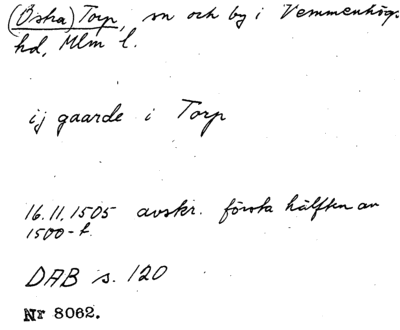 (Östra) Torp, sn och by i Vemmenhögs
hd, Mlm l.
ij gaarde i Torp
16.11.1505 avskr. första hälften av
1500-t.
DAB s. 120
Nr 8062.